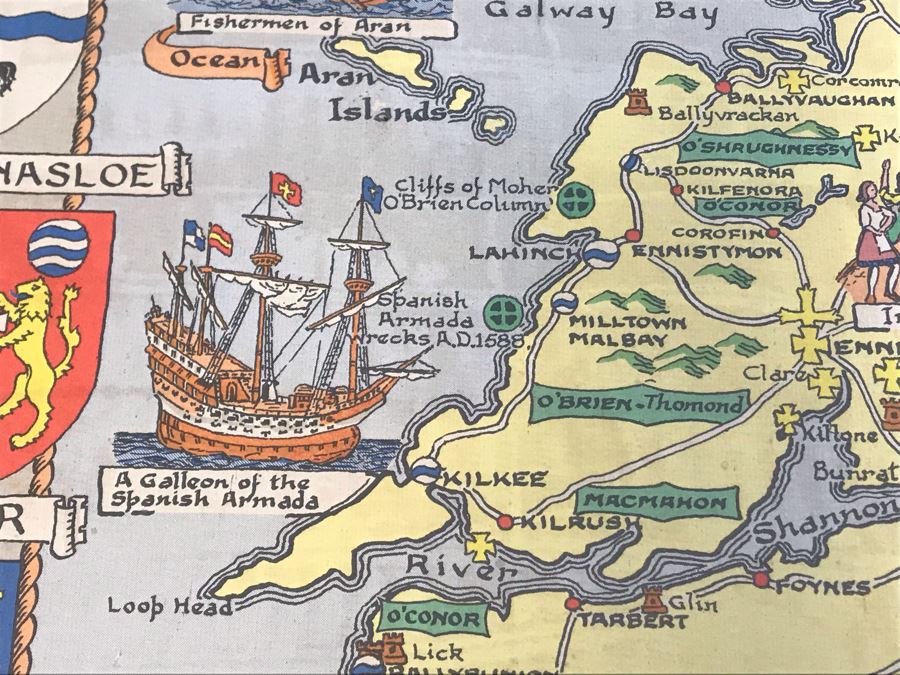 Fishermen of Aran
Galway Bay
Ocean
Aran
Islands
Corcomr
BALLYVAUGHAN
Ballyvrackan
O'SHRUGHNESSY
K
NASLOE
LISDOONVARNA
KILFENORA
O'CONOR
Cliffs of Moher
O'Brien Column
COROFIN
LAHINCH
ENNISTYMON
Spanish
Armada
wrecks A.D.1588
MILLTOWN
MALBAY
In
ENNI
Clare
O'BRIEN-Thomond
Kiltone
Bunrat
A Galleon of the
Spanish Armada
KILKEE
MACMAHON
R
KILRUSH
Shannon
River
FOYNES
Loop Head
O'CONOR
Glin
TARBERT
Lick
BALLYBUNION